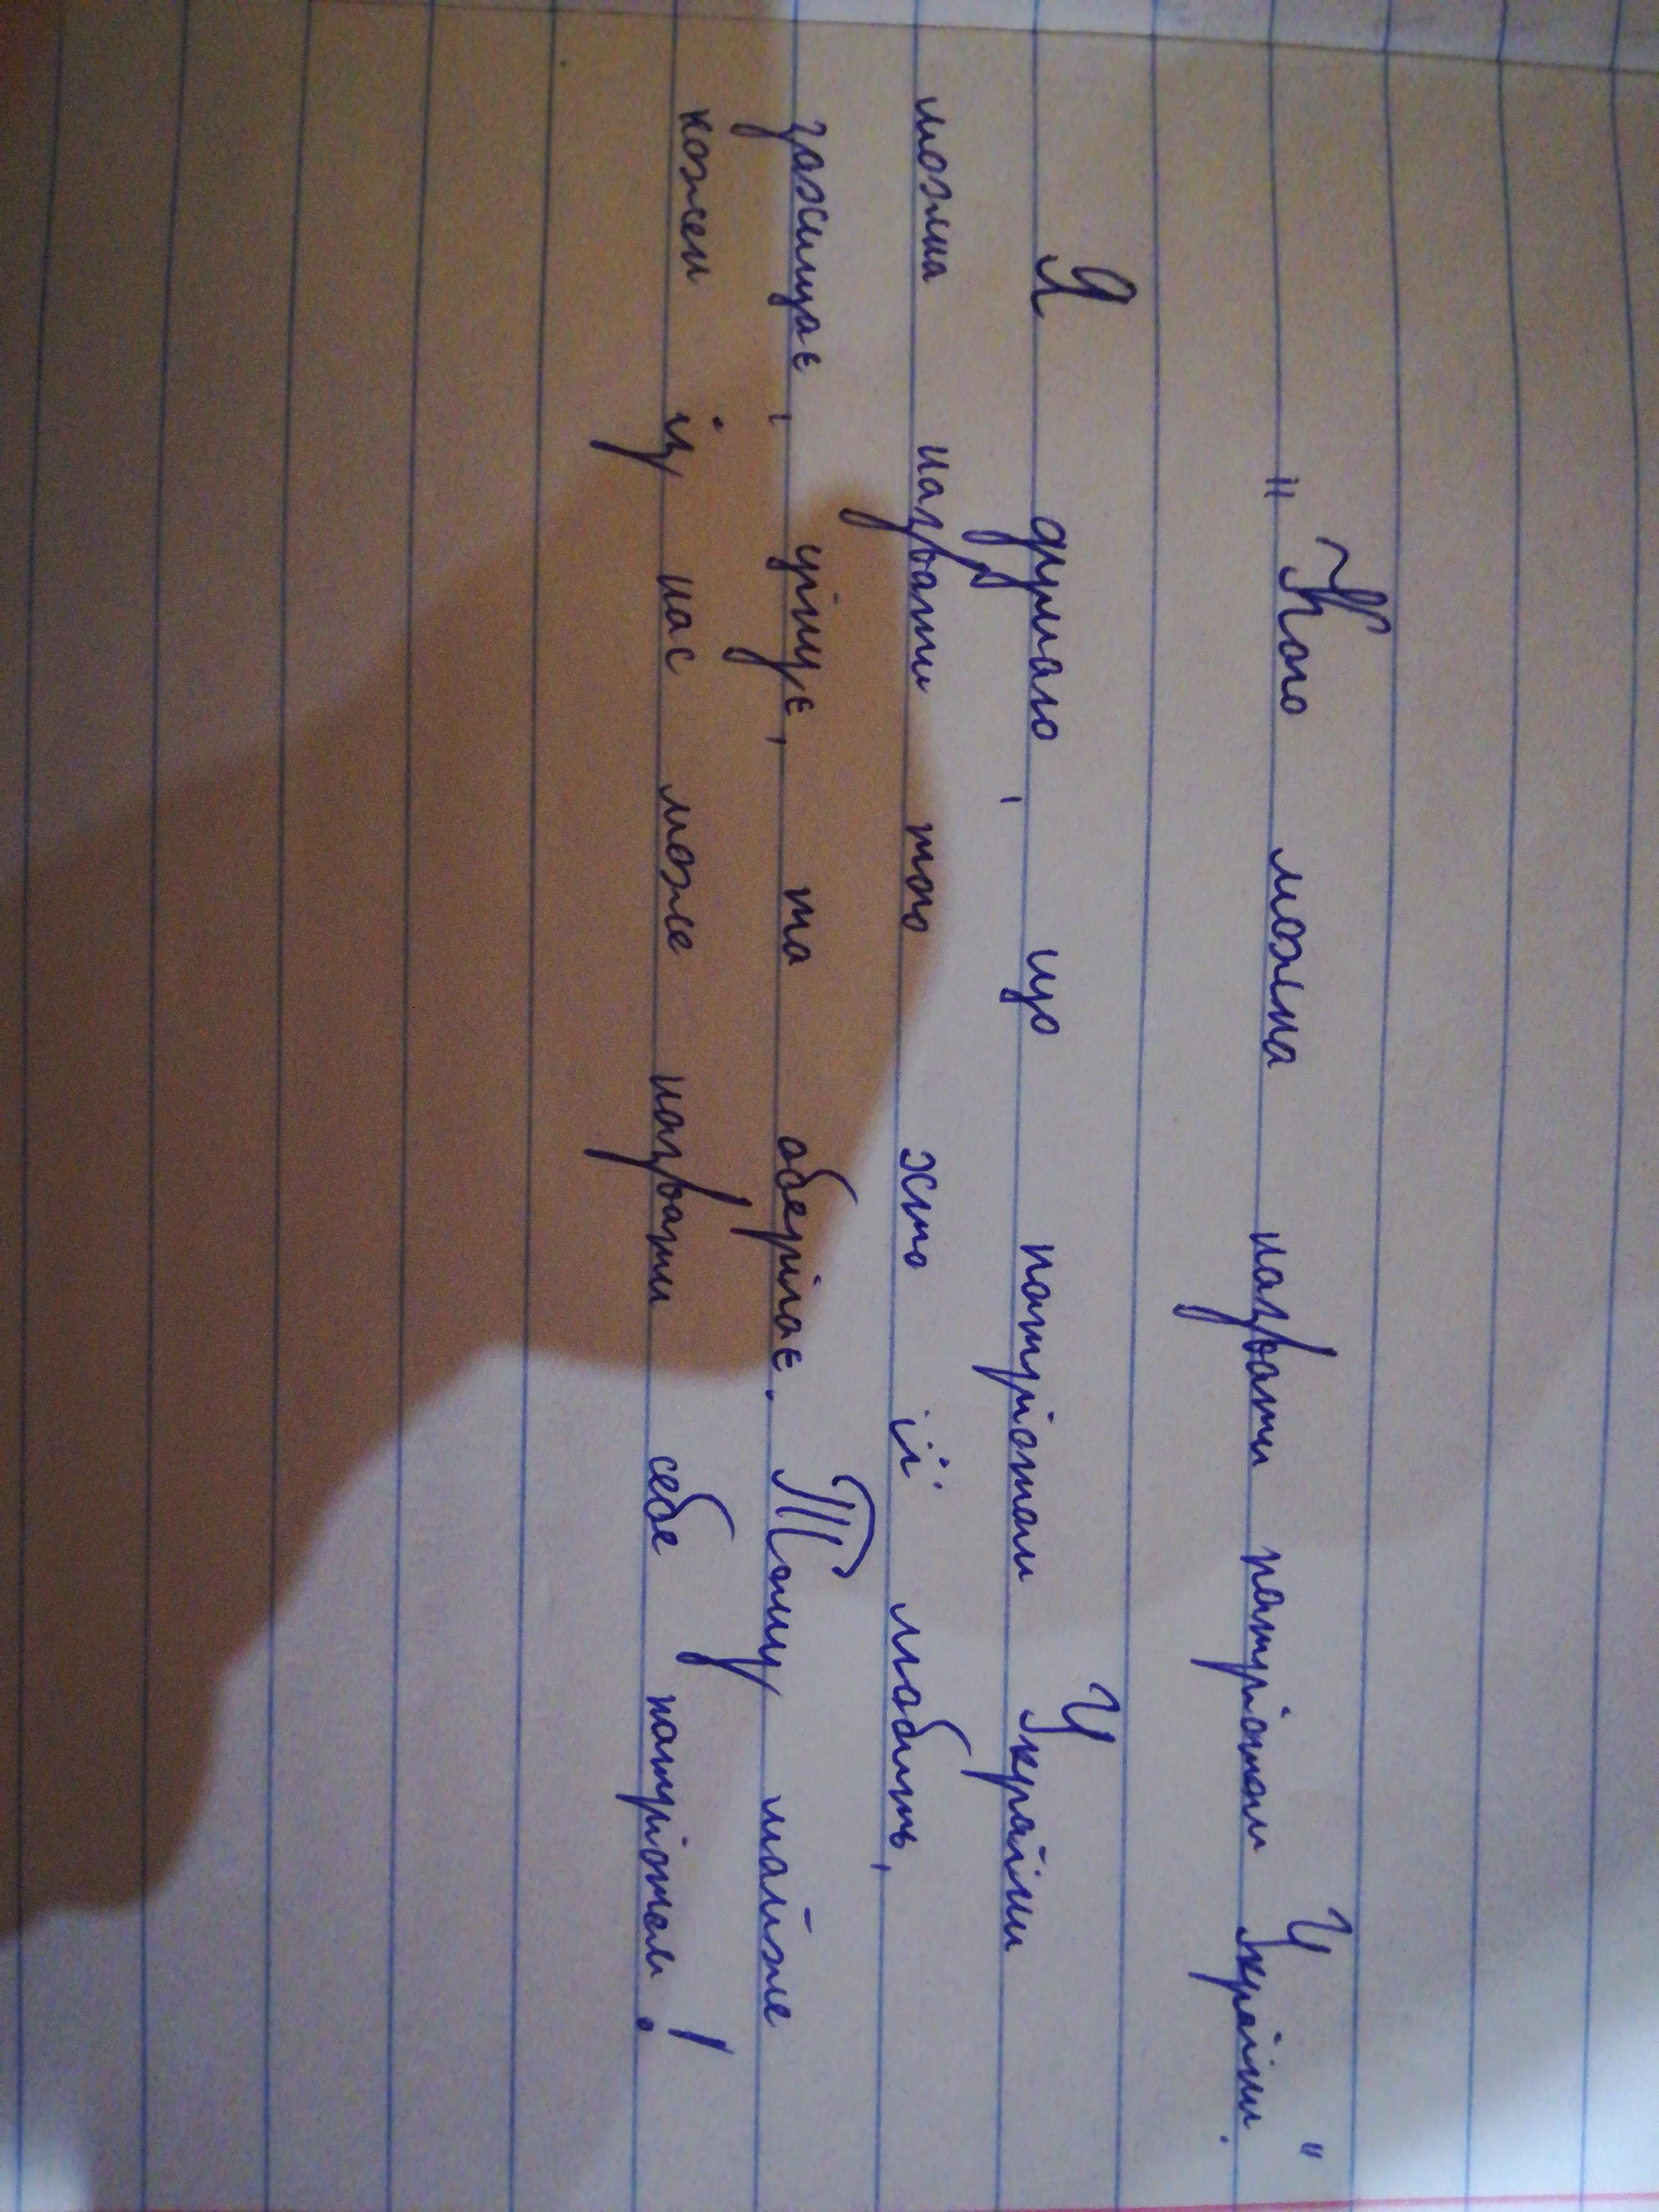 "Кого можна назвати патріотом України."
Я думаю, що патріотом України
можна назвати того хто її любить,
захищає, цінує, та оберігає. Тому майже
кожен із нас може назвати себе патріотом!